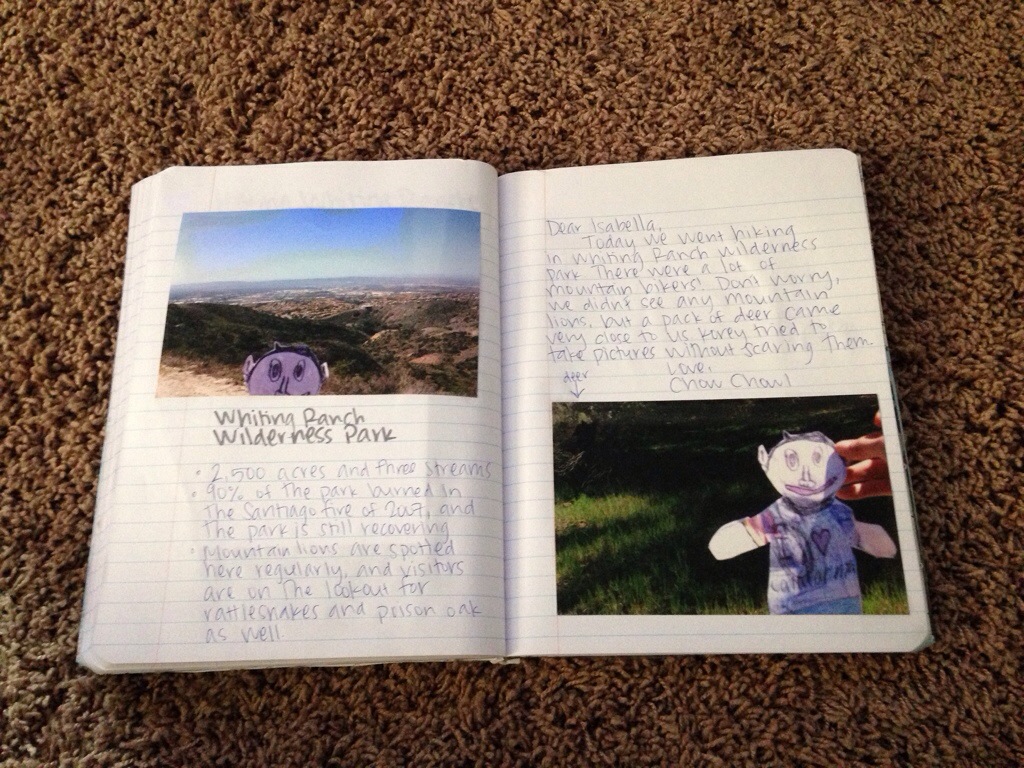 Whiting Ranch
Wilderness Park
• 2,500 acres and three streams
• 90% of the park burned in
the Santiago fire of 2007, and
the park is still recovering
• Mountain lions are spotted
here regularly, and visitors
are on the lookout for
rattlesnakes and poison oak
as well.
Dear Isabella,
Today we went hiking
in Whiting Ranch Wilderness
Park. There were a lot of
mountain bikers! Don't worry,
we didn't see any mountain
lions, but a pack of deer came
very close to us. Korey tried to
take pictures without scaring them.
Love,
Chow Chow!
deer
I ♥
California